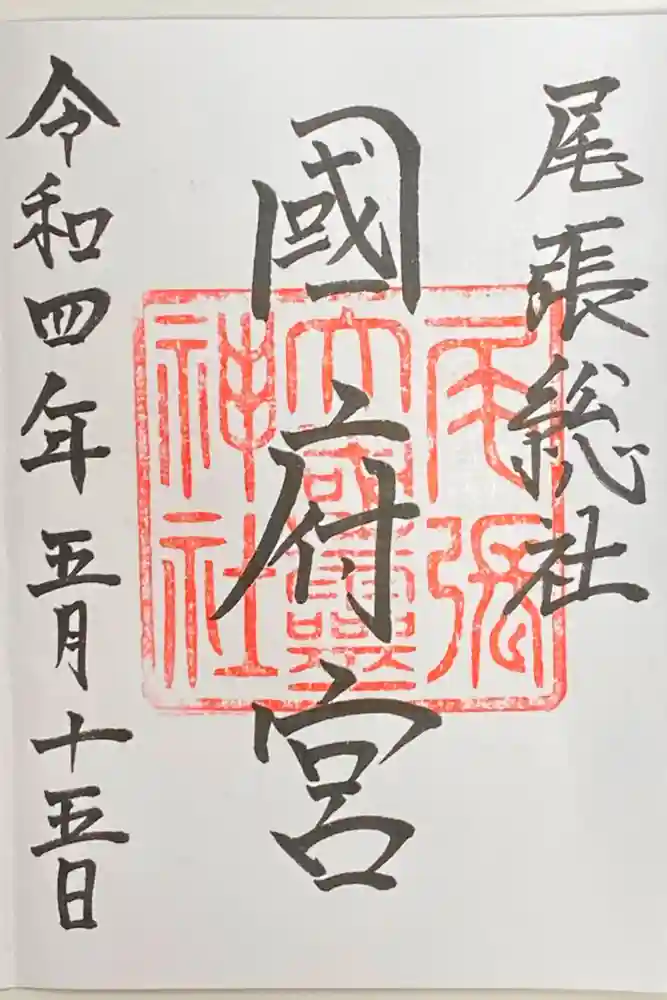 尾張総社
國府宮
尾張大國霊神社
令和四年五月十五日